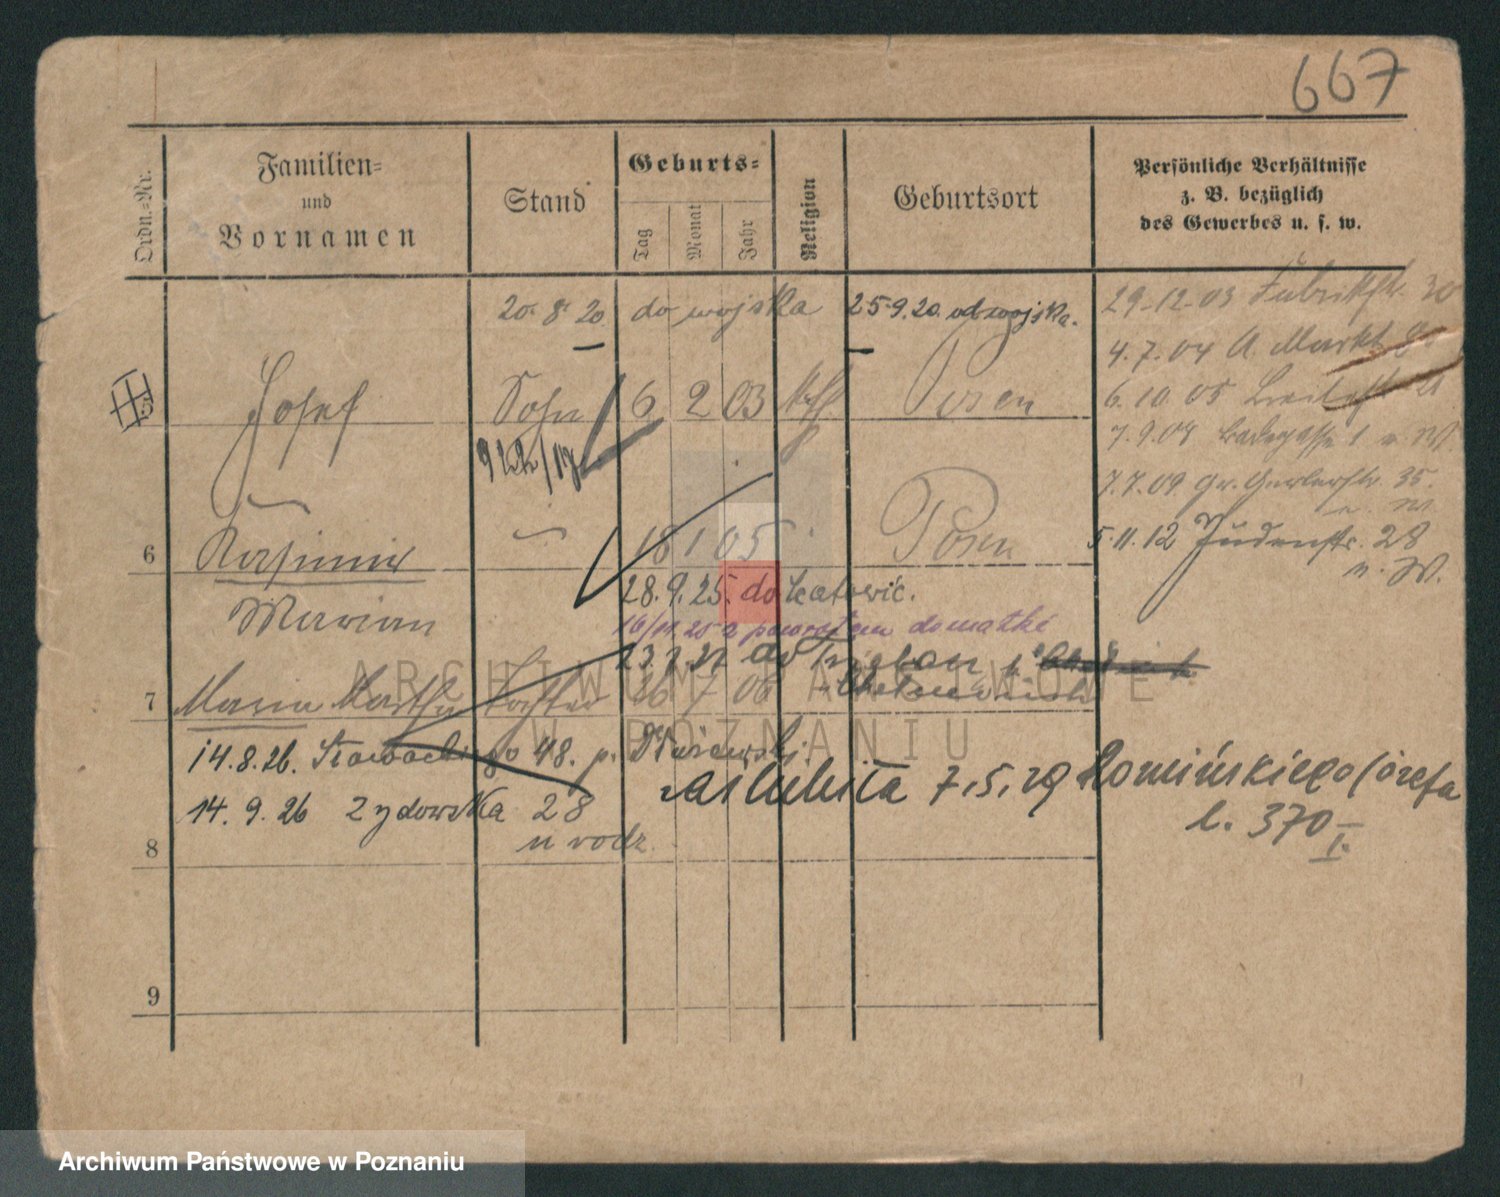 667
Ordn.-Nr.
Familien-
und
Vornamen
Stand
Geburts-
Tag
Monat
Jahr
Religion
Geburtsort
Persönliche Verhältnisse
z. B. bezüglich
des Gewerbes u. s. w.
20. 8. 20 do wojska 25.9.20. od wojska.
29.12.03 Fabrikstr. 30
4.7.04 A. Markt
5 Josef Sohn 6 2 03 kath Posen
6.10.05
922/17
7.9.09 1 u. W.
7.7.09 Gr. Gerberstr. 35.
u. W.
6 Kasimir 18 1 05 Posen
5.11.12 Judenstr. 28
u. W.
Marian
28.9.25. do Katowic.
16/11 25 z powrotem do matki
23.7.27 do
7 Maria Martha Tochter 26 7 06
14.8.26. Słowackiego 48. p.
zaślubiła 7.5.29 Romińskiego Józefa
14. 9. 26 Zydowska 28
l. 370 I.
u rodz.
8
9
ARCHIWUM PAŃSTWOWE
W POZNANIU
Archiwum Państwowe w Poznaniu